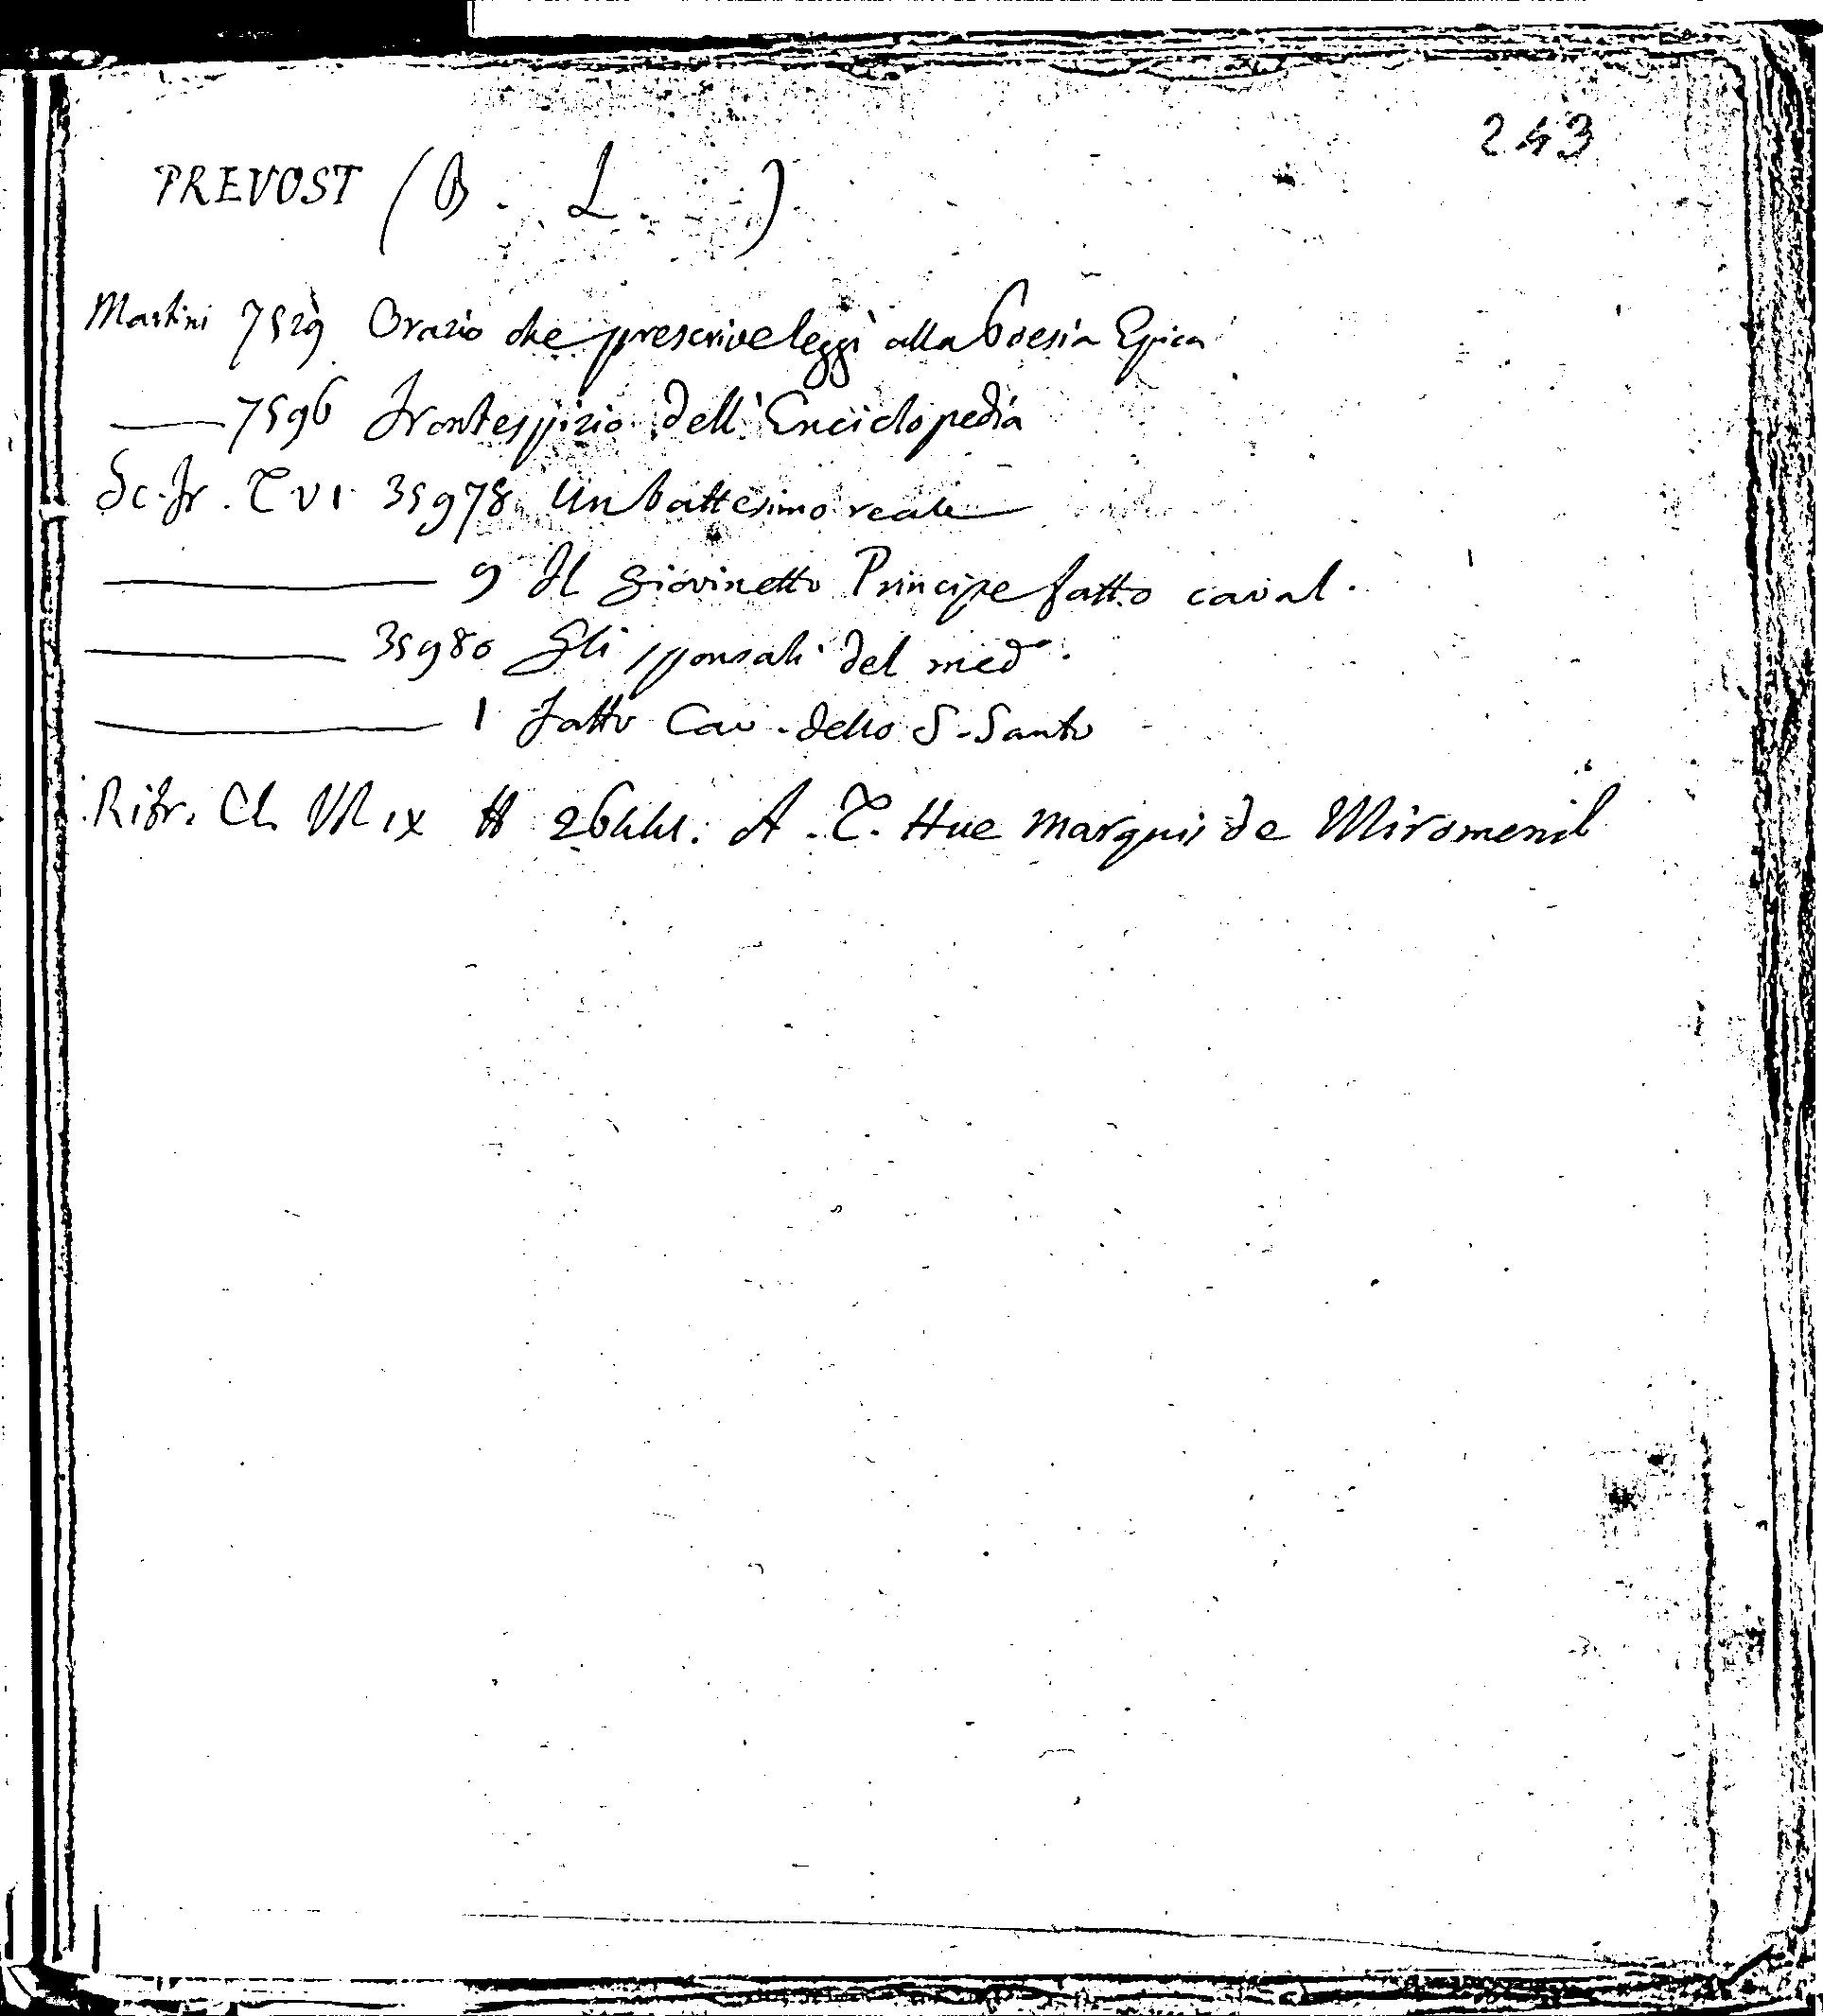 243
PREVOST (B. L. )
Martini 7529 Orazio che prescrive leggi alla Poesia Epica
—— 7596 Frontespizio dell'Enciclopedia
Sc. Fr. T VI. 35978 Un battesimo reale
—— 9 Il giovinetto Principe fatto caval.
—— 35980 Gli sponsali del med°.
—— 1 fatto Cav. dello S. Santo
Ritr. Cl. VII IX # 26441. A. T. Hue marquis de Miromenil